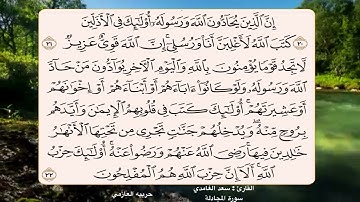 إِنَّ الَّذِينَ يُحَادُّونَ اللَّهَ وَرَسُولَهُ أُولَٰئِكَ فِي الْأَذَلِّينَ
٢٠ كَتَبَ اللَّهُ لَأَغْلِبَنَّ أَنَا وَرُسُلِي إِنَّ اللَّهَ قَوِيٌّ عَزِيزٌ ٢١
لَا تَجِدُ قَوْمًا يُؤْمِنُونَ بِاللَّهِ وَالْيَوْمِ الْآخِرِ يُوَادُّونَ مَنْ حَادَّ
اللَّهَ وَرَسُولَهُ وَلَوْ كَانُوا آبَاءَهُمْ أَوْ أَبْنَاءَهُمْ أَوْ إِخْوَانَهُمْ
أَوْ عَشِيرَتَهُمْ أُولَٰئِكَ كَتَبَ فِي قُلُوبِهِمُ الْإِيمَانَ وَأَيَّدَهُم
بِرُوحٍ مِّنْهُ وَيُدْخِلُهُمْ جَنَّاتٍ تَجْرِي مِن تَحْتِهَا الْأَنْهَارُ
خَالِدِينَ فِيهَا رَضِيَ اللَّهُ عَنْهُمْ وَرَضُوا عَنْهُ أُولَٰئِكَ حِزْبُ
اللَّهِ أَلَا إِنَّ حِزْبَ اللَّهِ هُمُ الْمُفْلِحُونَ ٢٢
القارئ : سعد الغامدي
سورة المجادلة
حربيه العازمي